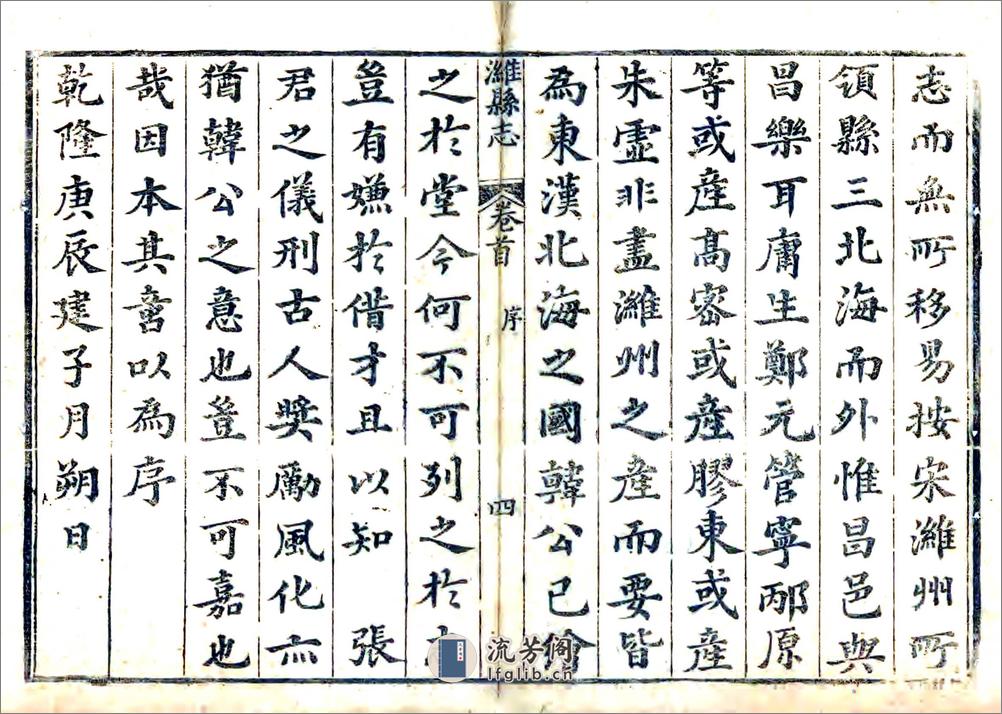 志而無所移易按宋濰州所
領縣三北海而外惟昌邑與
昌樂耳庸生鄭元管寧邴原
等或產高密或產膠東或產
朱虛非盡濰州之產而要皆
為東漢北海之國韓公已繪
濰縣志 卷首 序 四
之於堂今何不可列之於
豈有嫌於借才且以知張
君之儀刑古人獎勵風化亦
猶韓公之意也豈不可嘉也
哉因本其書以為序
乾隆庚辰建子月朔日
流芳阁
lfglib.cn